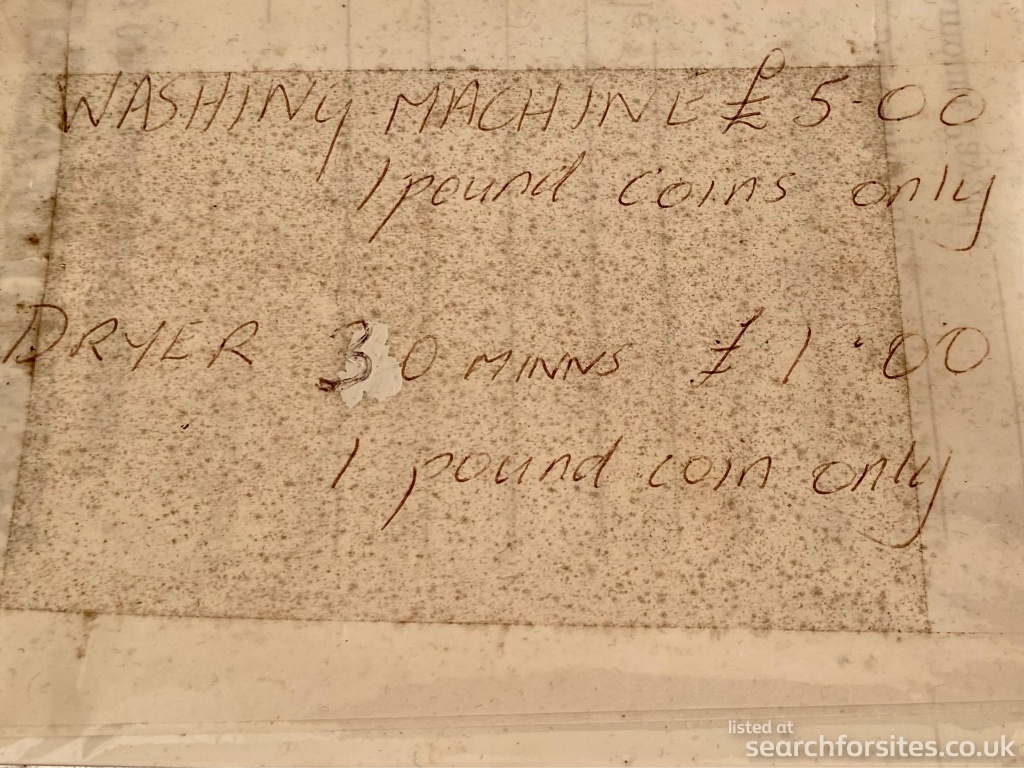 WASHING MACHINE £5.00
1 pound coins only
DRYER 30 MINNS £1.00
1 pound coin only
listed at
searchforsites.co.uk